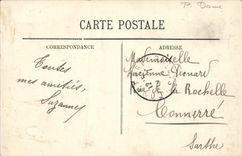 P. Dome
CARTE POSTALE
CORRESPONDANCE
ADRESSE
Toutes
mes amitiés,
Suzanne
Mademoiselle
Léonard
Rue de la Rochelle
Connerré
Sarthe